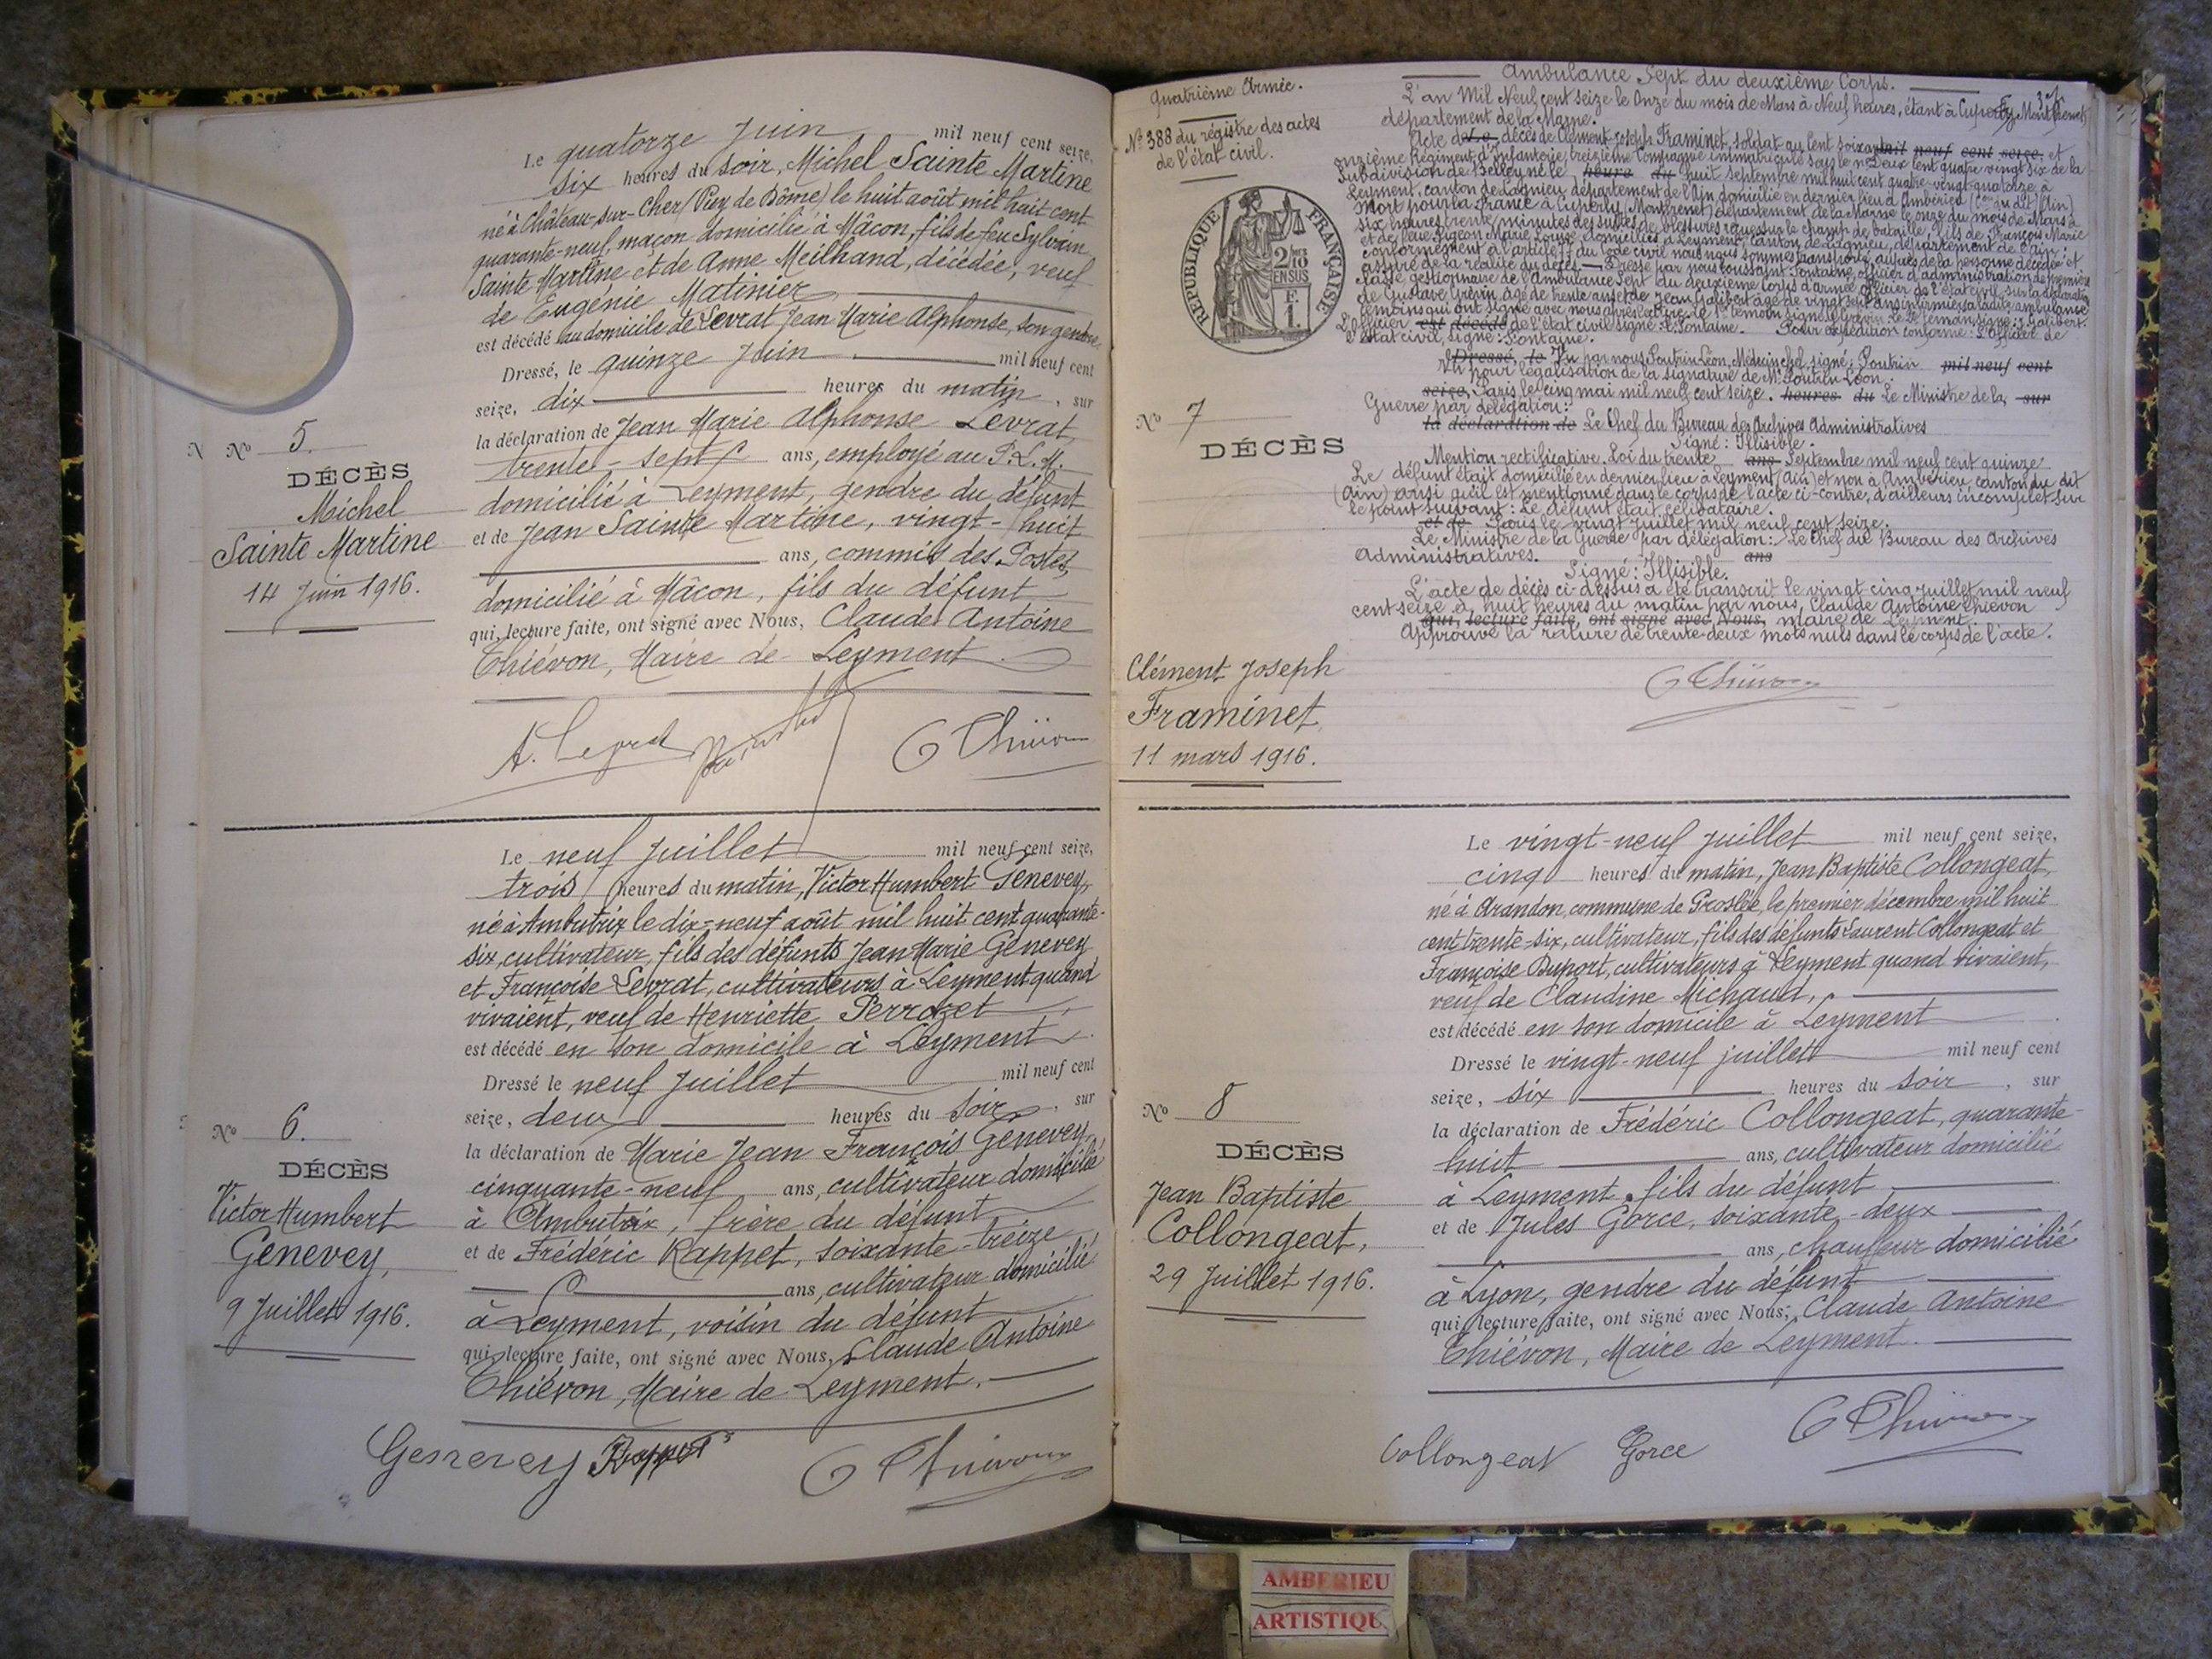 Le quatorze Juin mil neuf cent seize,
six heures du soir, Michel Sainte Martine
né à Château-sur-Cher (Puy de Dôme) le huit août mil huit cent
quarante-neuf, maçon domicilié à Mâcon, fils de feu Sylvain
Sainte Martine et de Anne Meilhand, décédée, veuf
de Eugénie Matinier
est décédé au domicile de Levrat Jean Marie Alphonse, son gendre
Dressé, le quinze Juin mil neuf cent
seize, dix heures du matin, sur
la déclaration de Jean Marie Alphonse Levrat,
trente-sept ans, employé au P.L.M.
domicilié à Leyment, gendre du défunt
et de Jean Sainte Martine, vingt-huit
ans, commis des Postes,
domicilié à Mâcon, fils du défunt
qui, lecture faite, ont signé avec Nous, Claude Antoine
Thiévon, Maire de Leyment
N No 5.
DÉCÈS
Michel
Sainte Martine
14 Juin 1916.
A. Levrat
C Thiévon
Le neuf Juillet mil neuf cent seize,
trois heures du matin, Victor Humbert Genevey,
né à Ambutrix le dix-neuf août mil huit cent quarante-
six, cultivateur, fils des défunts Jean Marie Genevey
et Françoise Levrat, cultivateurs à Leyment quand
vivaient, veuf de Henriette Perrozet
est décédé en son domicile à Leyment
Dressé le neuf Juillet mil neuf cent
seize, deux heures du soir, sur
la déclaration de Marie Jean François Genevey,
cinquante-neuf ans, cultivateur domicilié
à Ambutrix, frère du défunt
et de Frédéric Rappet, soixante-treize
ans, cultivateur domicilié
à Leyment, voisin du défunt
qui, lecture faite, ont signé avec Nous, Claude Antoine
Thiévon, Maire de Leyment.
No 6.
DÉCÈS
Victor Humbert
Genevey,
9 Juillet 1916.
Genevey Rappet
C Thiévon
Quatrième Armée.
No 388 du régistre des actes
de l'état civil.
RÉPUBLIQUE FRANÇAISE
2/10 EN SUS
F. 1.
Ambulance Sept du deuxième Corps.
L'an Mil Neuf cent seize le Onze du mois de Mars à Neuf heures, étant à Cuperly
département de la Marne.
Acte de Le décès de Clément Joseph Framinet, soldat au cent soixante neuf cent seize, et
onzième Régiment d'Infanterie, treizième Compagnie immatriculé sous le no Deux cent quatre vingt six de la
Subdivision de Belley né le heure du huit Septembre mil huit cent quatre-vingt-quatorze à
Leyment, canton de Lagnieu département de l'Ain domicilié en dernier lieu à Ambérieu (Con du dit) (Ain)
Mort pour la France à Cuperly (Montfrenet) département de la Marne le onze du mois de Mars à
six heures trente minutes des suites de blessures reçues sur le champ de bataille, fils de François Marie
et de feue Pigeon Marie Louise, domiciliés à Leyment, canton de Lagnieu, département de l'Ain
conformément à l'article 77 du Code civil nous nous sommes transporté auprès de la personne décédée et
assuré de la réalité du décès — Dressé par nous Toussaint Fontaine, officier d'administration de première
classe gestionnaire de l'Ambulance Sept du deuxième Corps d'armée officier de l'état civil, sur la déclaration
de Gustave Grévin âgé de trente ans et de Jean Galibert âgé de vingt sept ans infirmiers à ladite ambulance
témoins qui ont signé avec nous après lecture.
L'officier est décédé de l'état civil signé: T. Fontaine. Pour expédition conforme: l'officier de
l'état civil, signé: Fontaine.
Dressé, le Vu par nous Poutrin Léon, Médecin chef, signé: Poutrin mil neuf cent
Vu pour légalisation de la signature de Mr Poutrin Léon.
seize, Paris, le cinq mai mil neuf cent seize. heures du Le Ministre de la sur
Guerre par délégation:
la déclaration de Le Chef du Bureau des Archives Administratives
Signé: Illisible.
Mention rectificative. Loi du trente ans Septembre mil neuf cent quinze
Le défunt était domicilié en dernier lieu à Leyment (Ain) et non à Ambérieu canton du dit
(Ain) ainsi qu'il est mentionné dans le corps de l'acte ci-contre, d'ailleurs incomplet sur
le point suivant: Le défunt était célibataire.
et de Paris le vingt Juillet mil neuf cent seize.
Le Ministre de la Guerre par délégation: Le Chef du Bureau des Archives
Administratives. ans
Signé: Illisible.
L'acte de décès ci-dessus a été transcrit le vingt cinq Juillet mil neuf
cent seize à huit heures du matin par nous, Claude Antoine Thiévon
qui, lecture faite, ont signé avec Nous, maire de Leyment.
Approuvé la rature de trente-deux mots nuls dans le corps de l'acte.
C Thiévon
No 7
DÉCÈS
Clément Joseph
Framinet,
11 mars 1916.
Le vingt-neuf Juillet mil neuf cent seize,
cinq heures du matin, Jean Baptiste Collongeat,
né à Arandon, commune de Groslée, le premier décembre mil huit
cent trente-six, cultivateur, fils des défunts Laurent Collongeat et
Françoise Duport, cultivateurs à Leyment quand vivaient,
veuf de Claudine Michaud,
est décédé en son domicile à Leyment
Dressé le vingt-neuf juillet mil neuf cent
seize, six heures du soir, sur
la déclaration de Frédéric Collongeat, quarante-
huit ans, cultivateur domicilié
à Leyment, fils du défunt
et de Jules Gorce, soixante-deux
ans, chauffeur domicilié
à Lyon, gendre du défunt
qui, lecture faite, ont signé avec Nous, Claude Antoine
Thiévon, Maire de Leyment.
No 8
DÉCÈS
Jean Baptiste
Collongeat,
29 Juillet 1916.
Collongeat Gorce C Thiévon
AMBERIEU
ARTISTIQU